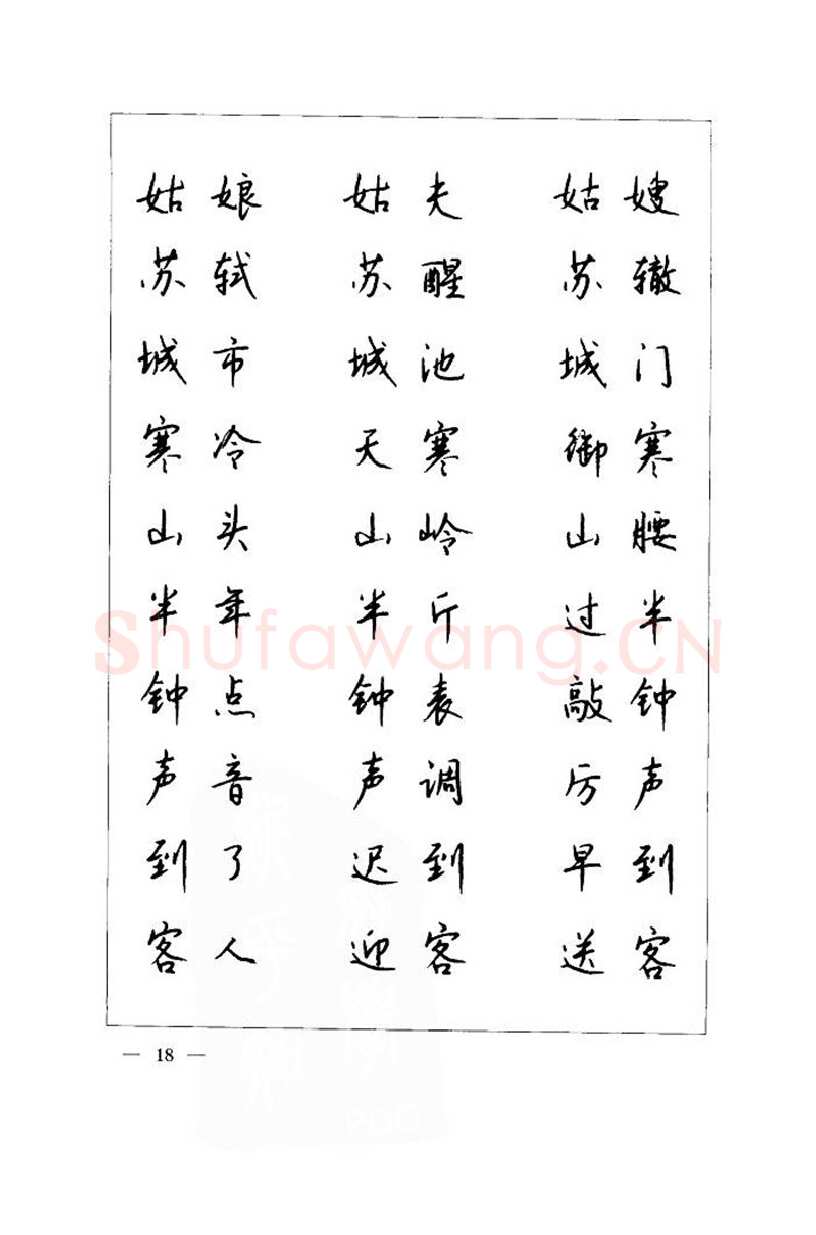 姑娘 姑夫 姑嫂
苏轼 苏醒 苏辙
城市 城池 城门
寒冷 天寒 御寒
山头 山岭 山腰
半年 半斤 过半
钟点 钟表 敲钟
声音 声调 厉声
到了 迟到 早到
客人 迎客 送客
Shufawang.CN
— 18 —